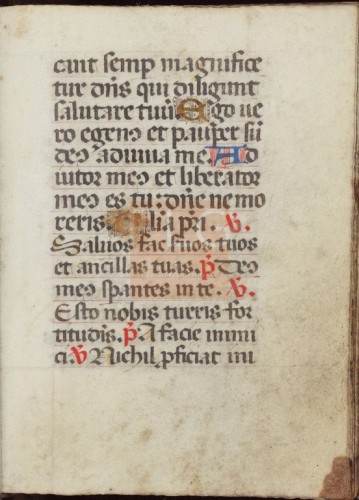 cant semp magnifice
tur dñs qui diligunt
salutare tuū Ego ve
ro egens et paup et sū
deus adiuva me Ad
iutor meus et liberator
meus es tu: dñe ne mo
reris. Glia pri. ℣.
Salvos fac suos tuos
et ancillas tuas. ℟ Deus
meus spantes in te. ℣.
Esto nobis turris for
titudis. ℟. A facie inimi
ci. ℣ Nichil pficiat ini